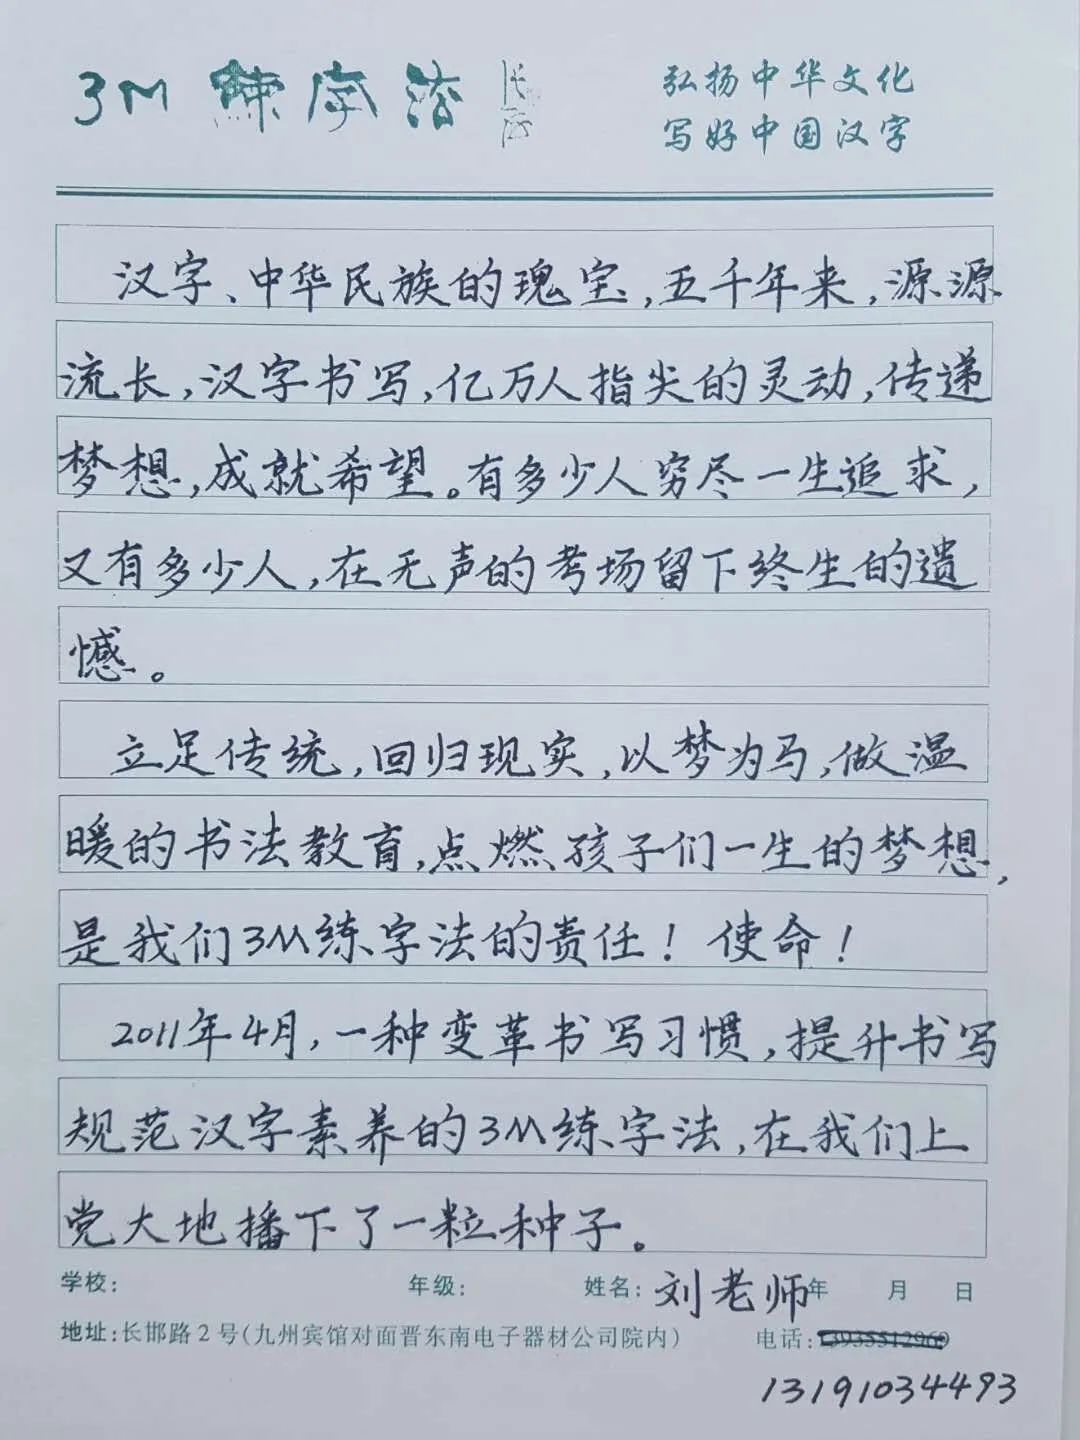 3M 練字法 长治
弘扬中华文化
写好中国汉字
汉字、中华民族的瑰宝,五千年来,源源
流长,汉字书写,亿万人指尖的灵动,传递
梦想,成就希望。有多少人穷尽一生追求,
又有多少人,在无声的考场留下终生的遗
憾。
立足传统,回归现实,以梦为马,做温
暖的书法教育,点燃孩子们一生的梦想,
是我们3M练字法的责任!使命!
2011年4月,一种变革书写习惯,提升书写
规范汉字素养的3M练字法,在我们上
党大地播下了一粒种子。
学校: 年级: 姓名:刘老师 年 月 日
地址:长邯路2号(九州宾馆对面晋东南电子器材公司院内) 电话:13935512969
13191034493